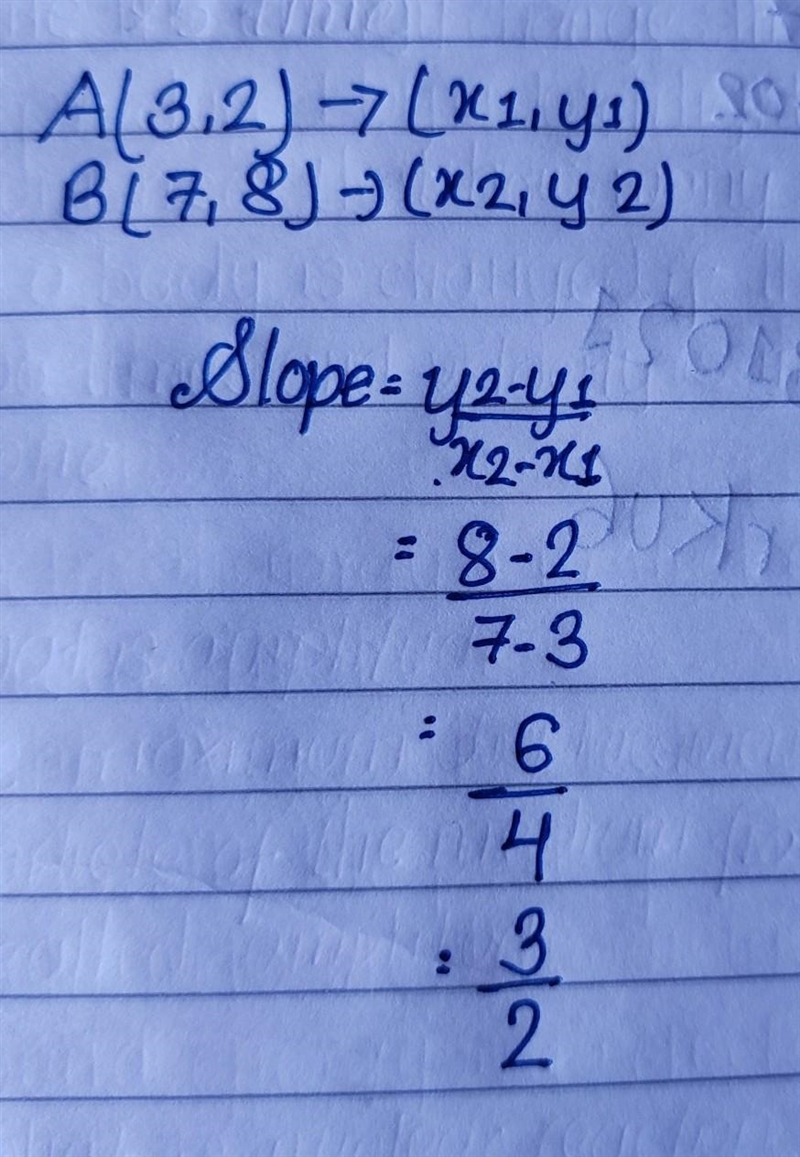 A(3,2) → (x1, y1)
B(7, 8) → (x2, y2)
Slope = y2-y1
x2-x1
= 8-2
7-3
= 6
4
= 3
2